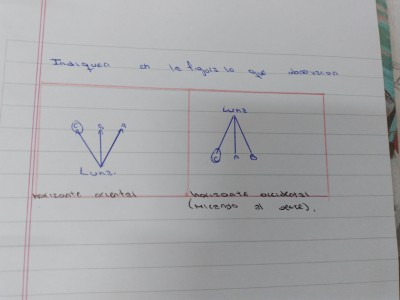 Indiquen en la figura lo que observaron
C B A
Luna.
horizonte oriental
Luna
C A B
horizonte occidental
(Mirando al oeste).